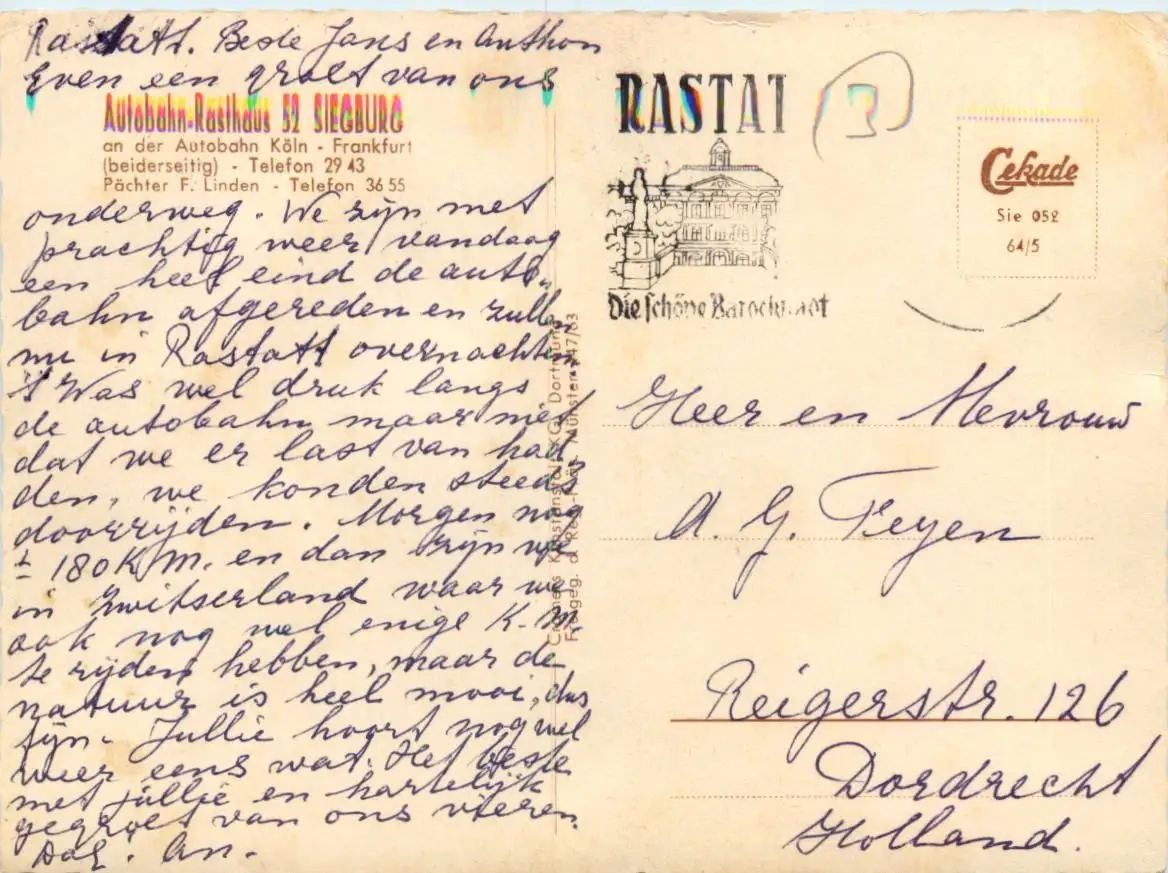 Rastatt. Beste Jans en Anthon
Even een groet van ons
Autobahn-Rasthaus 52 SIEGBURG
an der Autobahn Köln - Frankfurt
(beiderseitig) - Telefon 29 43
Pächter F. Linden - Telefon 36 55
onderweg. We zijn met
prachtig weer vandaag
een heel eind de auto-
bahn afgereden en zullen
nu in Rastatt overnachten
't Was wel druk langs
de autobahn maar niet
dat we er last van had
den, we konden steeds
doorrijden. Morgen nog
± 180 K.M. en dan zijn we
in Zwitserland waar we
ook nog wel enige K.M.
te rijden hebben, maar de
natuur is heel mooi, dus
fijn. Jullie hoort nog wel
weer eens wat. Het beste
met jullie en hartelijk
gegroet van ons vieren.
Dag. An.
Cramers Kunstanstalt KG, Dortmund
Freigeg. d. Reg.-Präs. Münster 747/63
RASTAT
Die schöne Barockstadt
Cekade
Sie 052
64/5
Heer en Mevrouw
A. G. Feyen
Reigerstr. 126
Dordrecht
Holland.